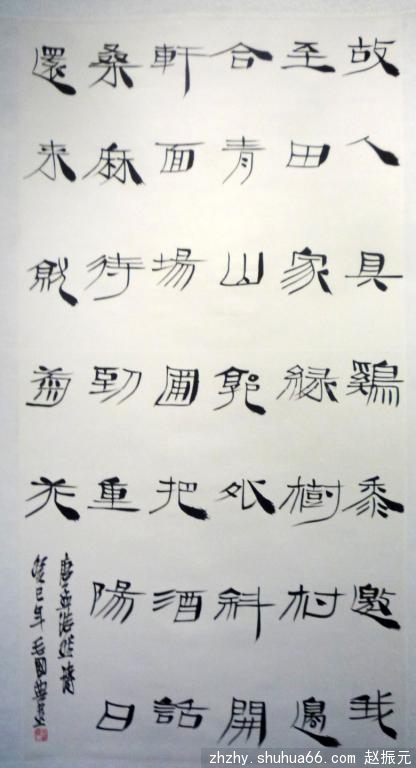 故人具鷄黍邀我
至田家緑樹村邊
合青山郭外斜開
軒面場圃把酒話
桑麻待到重陽日
還來就菊花
唐孟浩然詩
癸巳年毛國典
zhzhy.shuhua66.com 赵振元